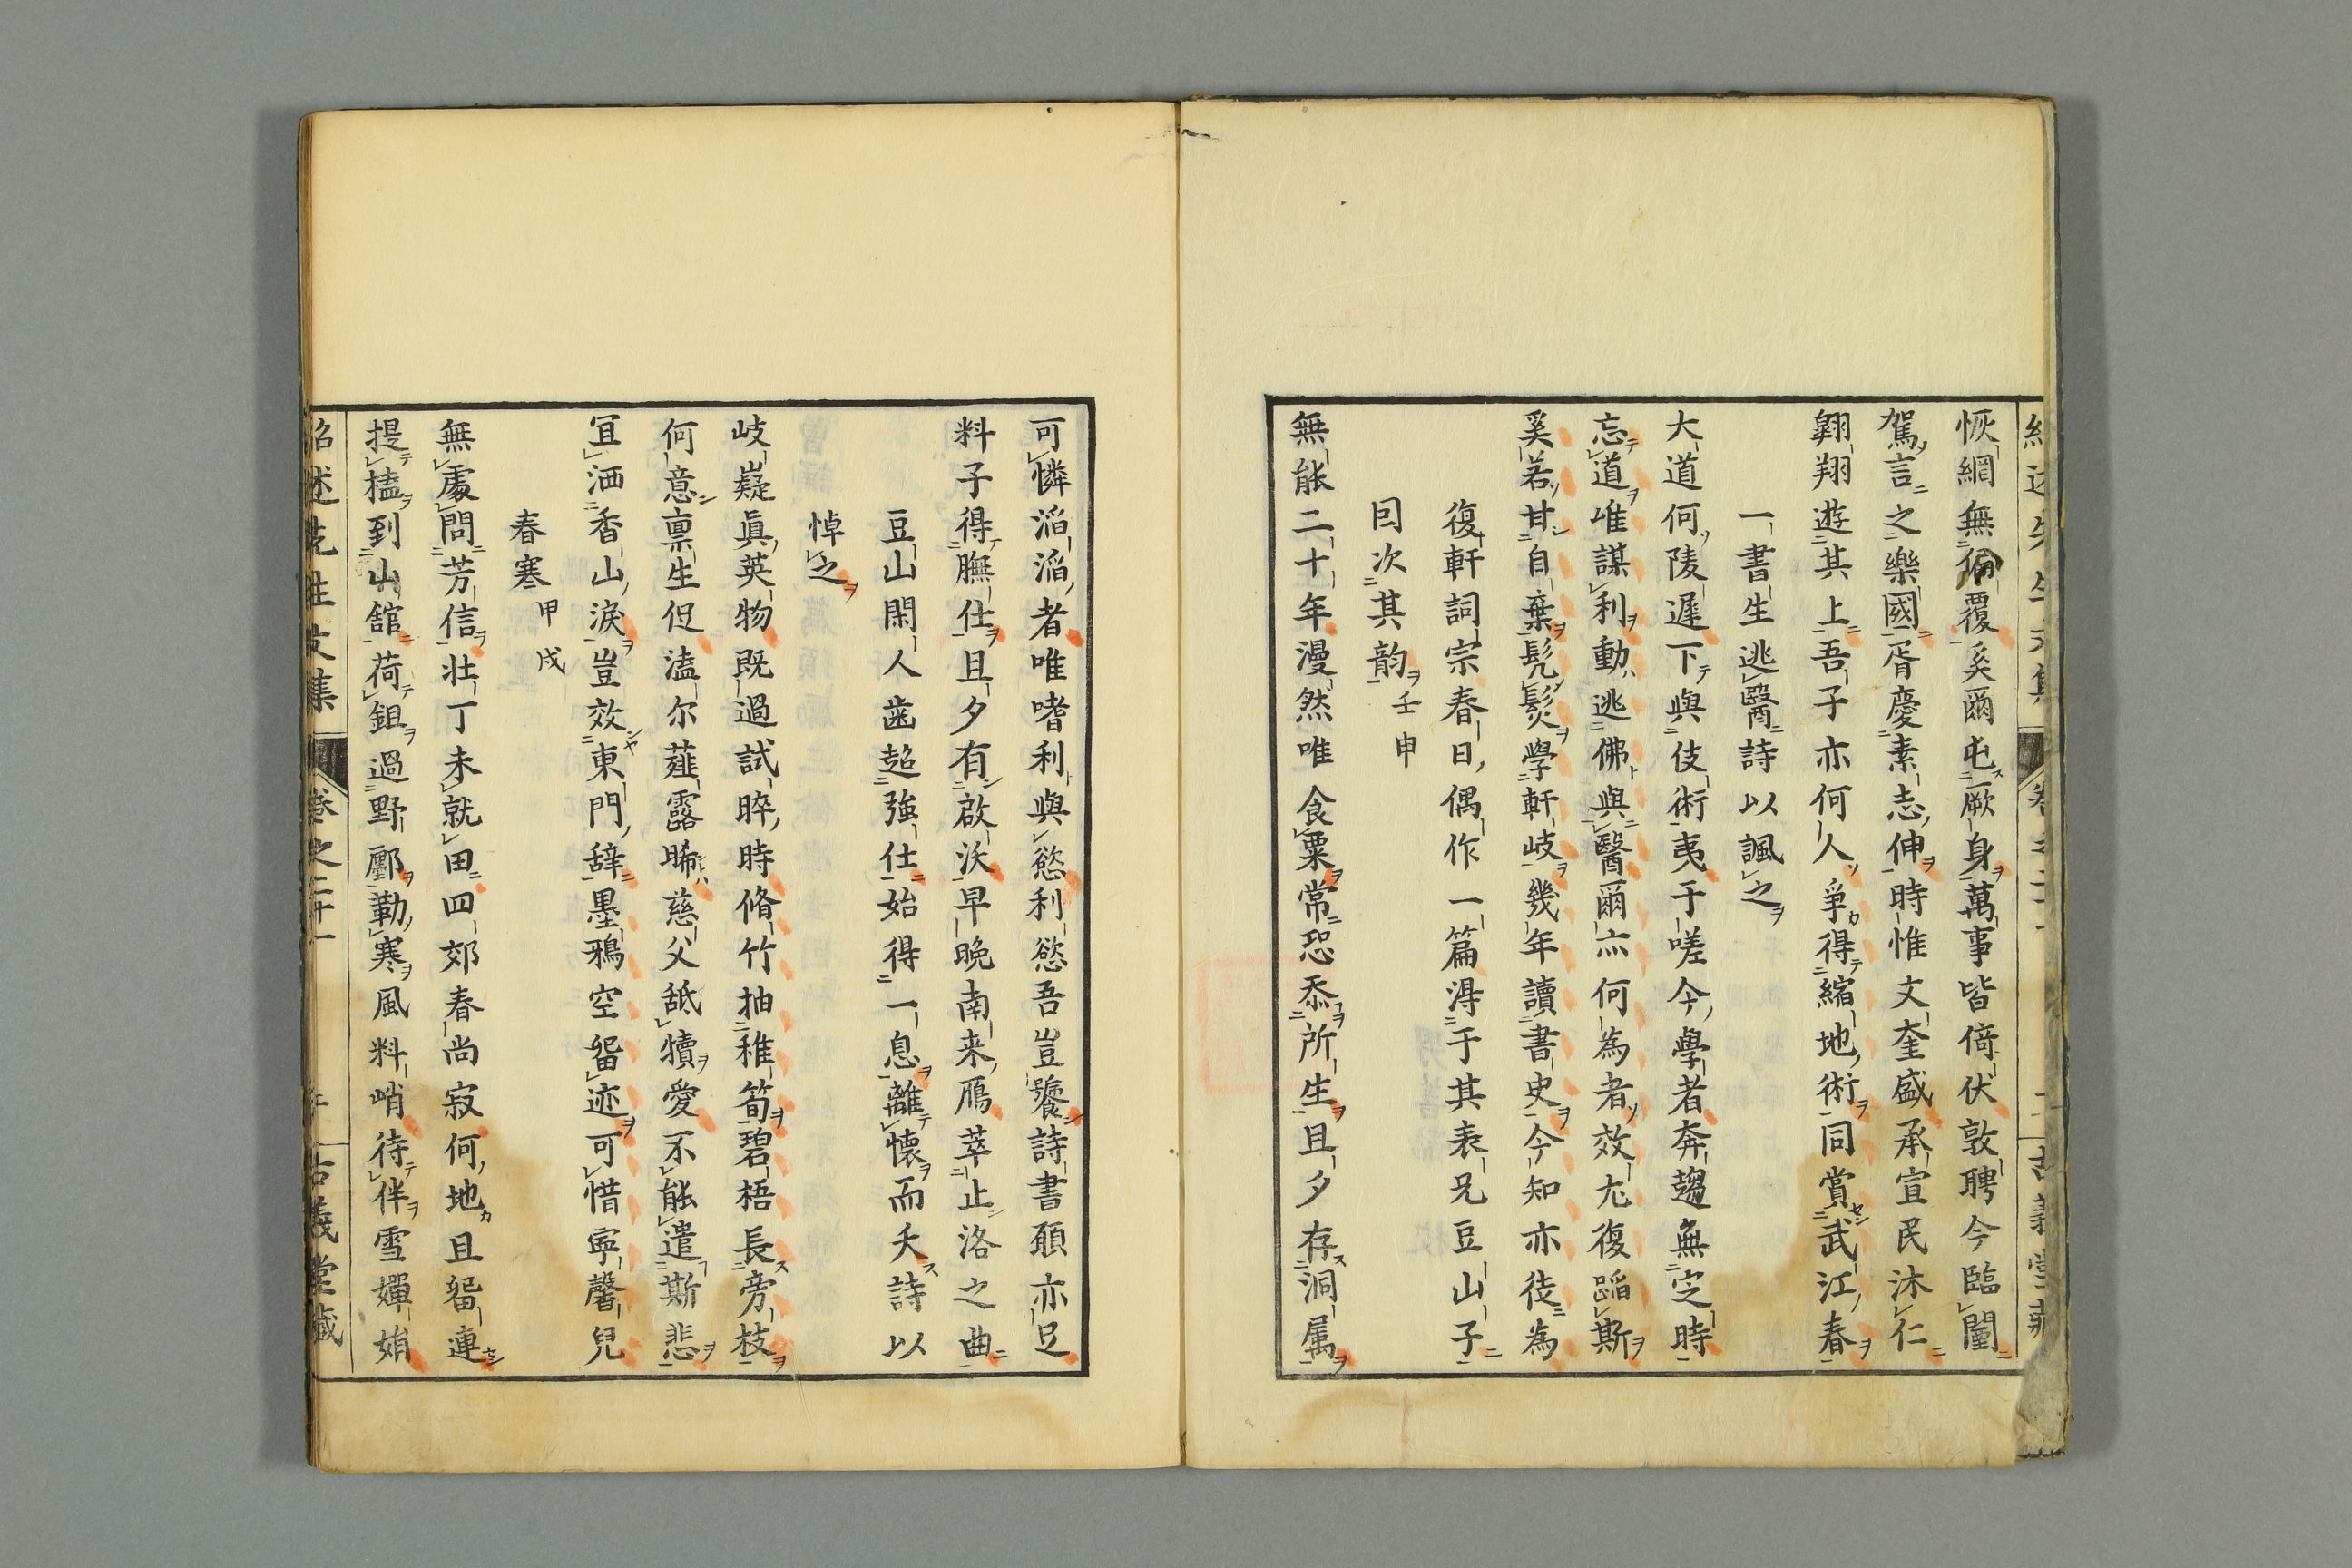 恢網無偏覆奚爾屯厥身萬事皆倚伏敦聘今臨闉
駕言之樂國胥慶素志伸時惟文奎盛承宣民沐仁
翺翔遊其上吾子亦何人爭得縮地術同賞武江春
一書生逃醫詩以諷之
大道何陵遲下與伎術夷于嗟今學者奔趨無定時
忘道唯謀利動逃佛與醫爾亦何為者效尤復蹈斯
奚若甘自棄髠髮學軒岐幾年讀書史今知亦徒為
復軒詞宗春日偶作一篇淂于其表兄豆山子
因次其韵 壬申
無能二十年漫然唯食粟常恐忝所生且夕存洞属
可憐滔滔者唯嗜利與慾利慾吾豈饕詩書願亦足
料子得膴仕且夕有啟沃早晚南来鴈萃止洛之曲
豆山閑人齒趍強仕始得一息離懷而夭詩以
悼之
岐嶷真英物既過試晬時脩竹抽稚筍碧梧長旁枝
何意禀生促溘尓薤露晞慈父舐犢愛不能遣斯悲
冝洒香山淚豈效東門辞墨鴉空留迹可惜寧馨兒
春寒 甲戌
無處問芳信壮丁未就田四郊春尚寂何地且留連
提榼到山舘荷鉏過野鄽勒寒風料峭待伴雪嬋娟
紹述先生文集 卷之二十一 古義堂藏